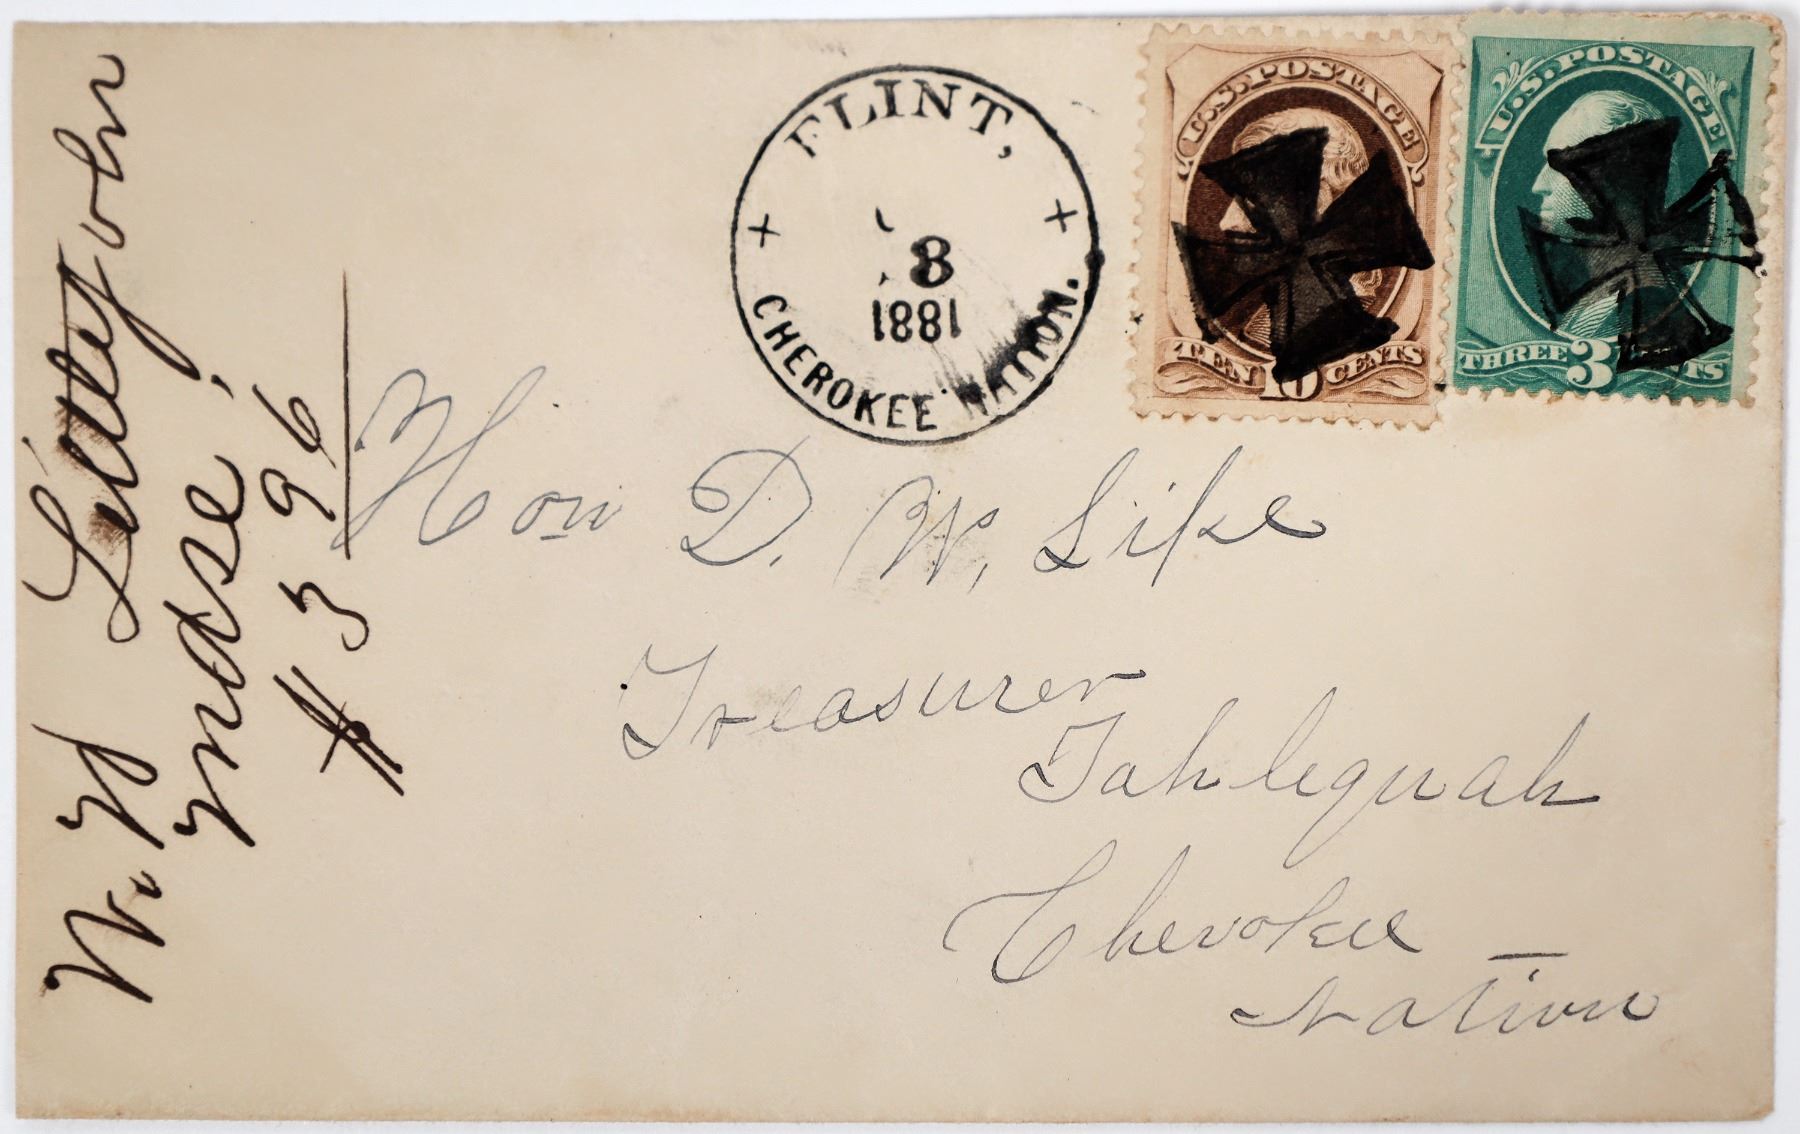 FLINT,
8
1881
CHEROKEE NATION.
U.S. POSTAGE
TEN 10 CENTS
U.S. POSTAGE
THREE 3 CENTS
Hon D. W. Lipe
Treasurer
Tahlequah
Cherokee
Nation
W. W Littlejohn
$3 96